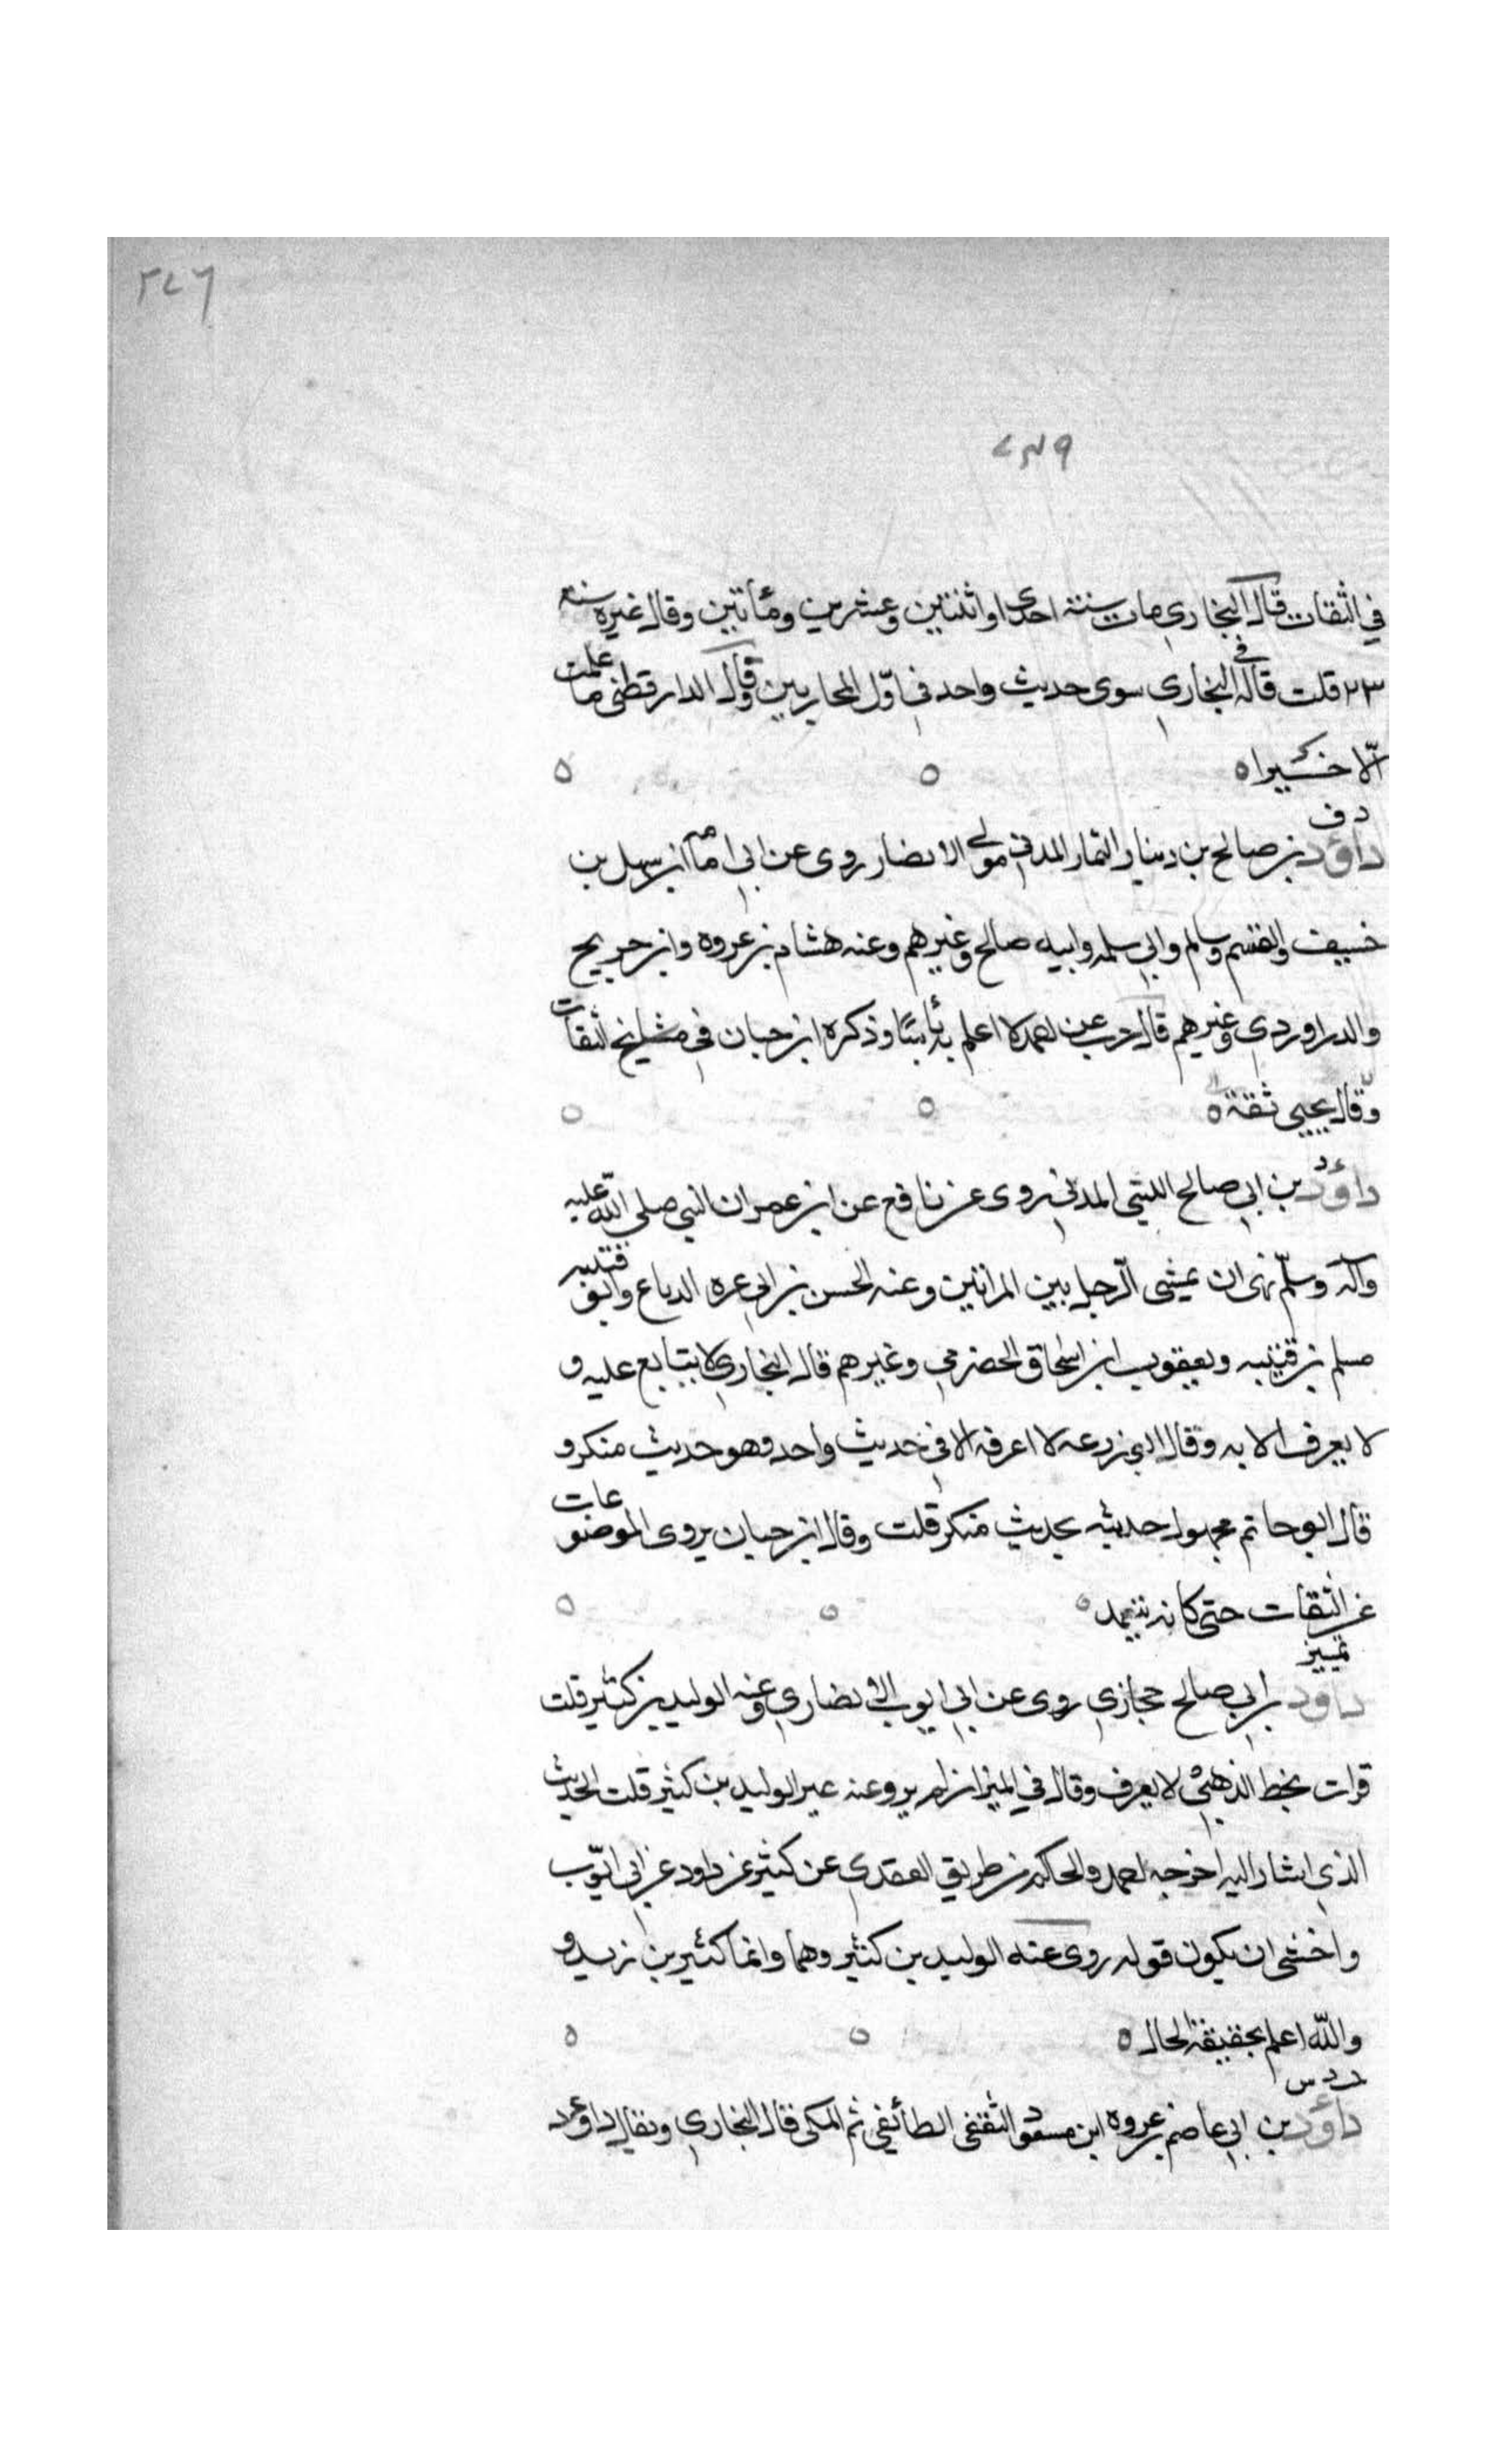 ٢٤٦
٤٣٩
في الثقات قال البخاري مات سنة احدى او اثنتين وعشرين ومأتين وقال غيره سنة
٢٣ قلت قاله في البخاري سوى حديث واحد في اوّل المحاربين وقال الدارقطني ما علمت
الّا خيرا ه
د ف
داؤد بن صالح بن دينار التمار المدني مولى الانصار روى عن ابي امامه ابن سهل بن
حنيف والقسم وسالم وابي سلمه وابيه صالح وغيرهم وعنه هشام بن عروه وابن جريج
والدراوردي وغيرهم قال حرب عن احمد لا اعلم به بأسًا وذكره ابن حبان في الثقات
وقال يحيى ثقة ه
د
داؤد بن ابي صالح الليثي المدني روى عن نافع عن ابن عمر ان النبي صلى الله عليه
وآله وسلّم نهى ان يمشى الرّجل بين المراتين وعنه الحسن بن ابي عره الدباع وابو قتيبه
مسلم بن قتيبه ويعقوب ابن اسحاق الحضرمي وغيرهم قال البخاري لا يتابع عليه و
لا يعرف الا به وقال ابي زرعه لا اعرفه الا في حديث واحد وهو حديث منكر و
قال ابو حاتم مجهول حديثه بحديث منكر قلت وقال ابن حبان يروى الموضوعات
عن الثقات حتى كانه يتعمد ه
تمييز
داود بن ابي صالح حجازي روى عن ابي ايوب الانصاري وعنه الوليد بن كثير قلت
قرات بخط الذهبي لا يعرف وقال في الميزان لم يرو عنه غير الوليد بن كثير قلت الحديث
الذي اشار اليه اخرجه احمد والحاكم من طريق العقدي عن كثير عن داود عن ابي ايّوب
واخشى ان يكون قوله روى عنه الوليد بن كثير وهما وانما كثير بن زيد و
والله اعلم بحقيقة الحال ه
د س
داؤد بن ابي عاصم بن عروه ابن مسعود الثقفي الطائفي ثم المكي قال البخاري ويقال داود